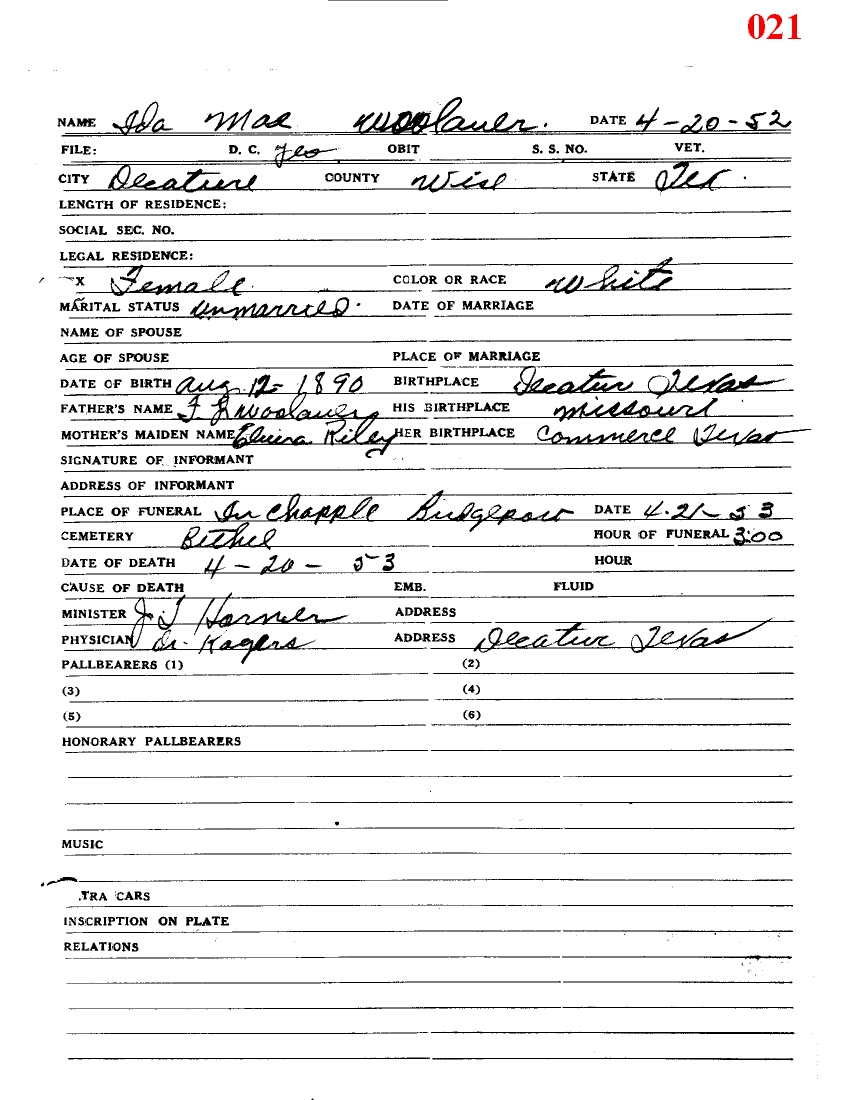 021
NAME Ida Mae Woolaver. DATE 4-20-52
FILE: D. C. Yes OBIT S. S. NO. VET.
CITY Decature COUNTY Wise STATE Tex.
LENGTH OF RESIDENCE:
SOCIAL SEC. NO.
LEGAL RESIDENCE:
X Female. COLOR OR RACE White
MARITAL STATUS Unmarried. DATE OF MARRIAGE
NAME OF SPOUSE
AGE OF SPOUSE PLACE OF MARRIAGE
DATE OF BIRTH Aug. 12- 1890 BIRTHPLACE Decatur Texas
FATHER'S NAME F Woolaver HIS BIRTHPLACE Missouri
MOTHER'S MAIDEN NAME Riley HER BIRTHPLACE Commerce Texas
SIGNATURE OF INFORMANT
ADDRESS OF INFORMANT
PLACE OF FUNERAL In Chapple Bridgeport DATE 4-21-53
CEMETERY Bethel HOUR OF FUNERAL 3:00
DATE OF DEATH 4-20-53 HOUR
CAUSE OF DEATH EMB. FLUID
MINISTER J. Horner ADDRESS
PHYSICIAN Dr. Rogers ADDRESS Decatur Texas
PALLBEARERS (1) (2)
(3) (4)
(5) (6)
HONORARY PALLBEARERS
MUSIC
TRA CARS
INSCRIPTION ON PLATE
RELATIONS